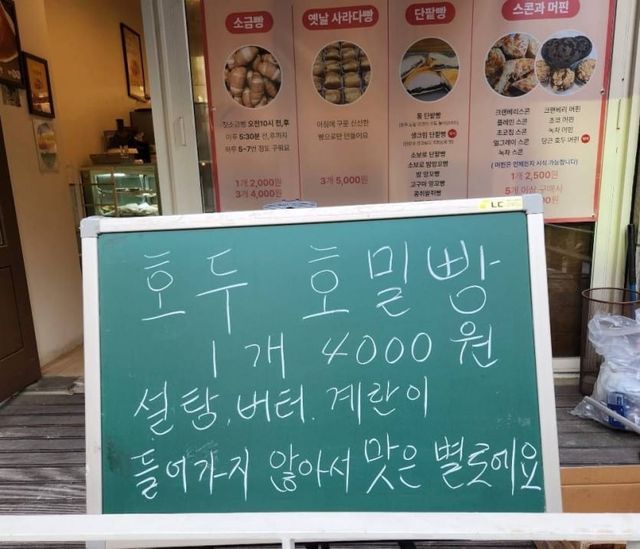 소금빵
갓소금빵 오전10시 전,후
이후 5:30분 전,후까지
하루 5~7번 정도 구워요
1개 2,000원
3개 4,000원
옛날 사라다빵
아침에 구운 신선한
빵으로만 만들어요
3개 5,000원
단팥빵
통 단팥빵
생크림 단팥빵
소보로 단팥빵
소보로 밤앙꼬빵
밤 앙꼬빵
고구마 앙꼬빵
스콘과 머핀
크랜베리스콘
플레인 스콘
초코칩 스콘
얼그레이 스콘
녹차 스콘
크랜베리 머핀
초코 머핀
녹차 머핀
당근 호두 머핀
( 머핀은 언제든지 시식 가능합니다)
1개 2,500원
5개 이상 구매시
LC
호두 호밀빵
1개 4000원
설탕,버터.계란이
들어가지 않아서 맛은 별로에요